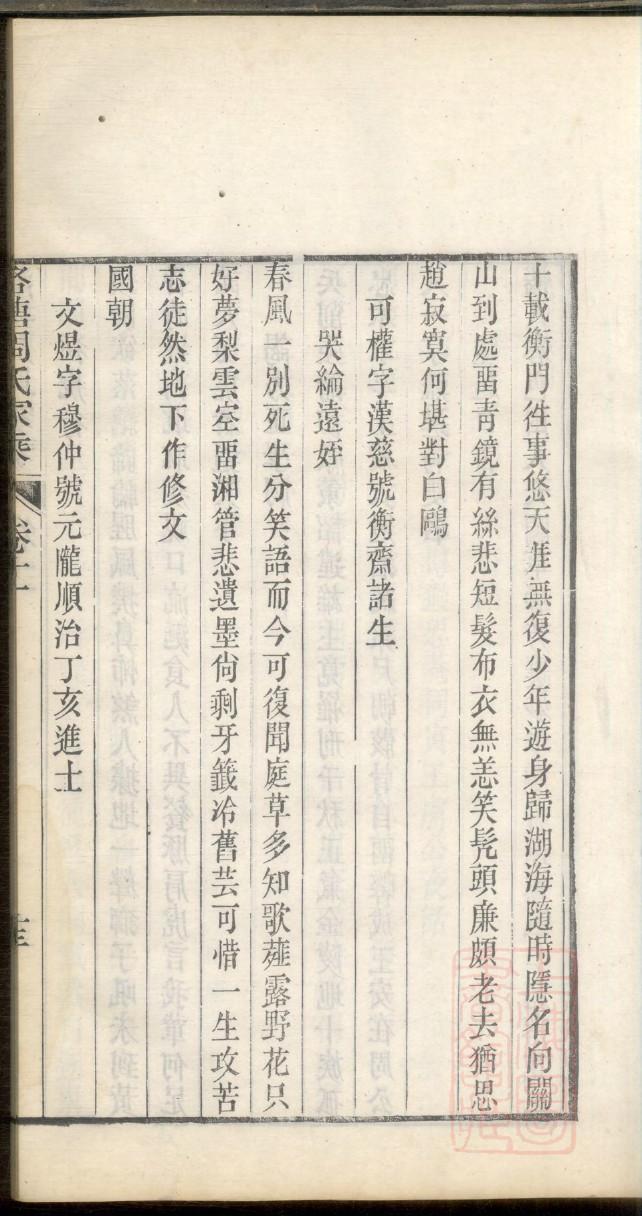 十載衡門往事悠天涯無復少年遊身歸湖海隨時隱名向關
山到處畱青鏡有絲悲短髮布衣無恙笑髠頭廉頗老去猶思
趙寂寞何堪對白鷗
可權字漢慈號衡齋諸生
哭綸遠姪
春風一別死生分笑語而今可復聞庭草多知歌薤露野花只
好夢梨雲空畱湘管悲遺墨尙剩牙籤冷舊芸可惜一生攻苦
志徒然地下作修文
國朝
文煜字穆仲號元龐順治丁亥進士
周氏家乘 卷十一